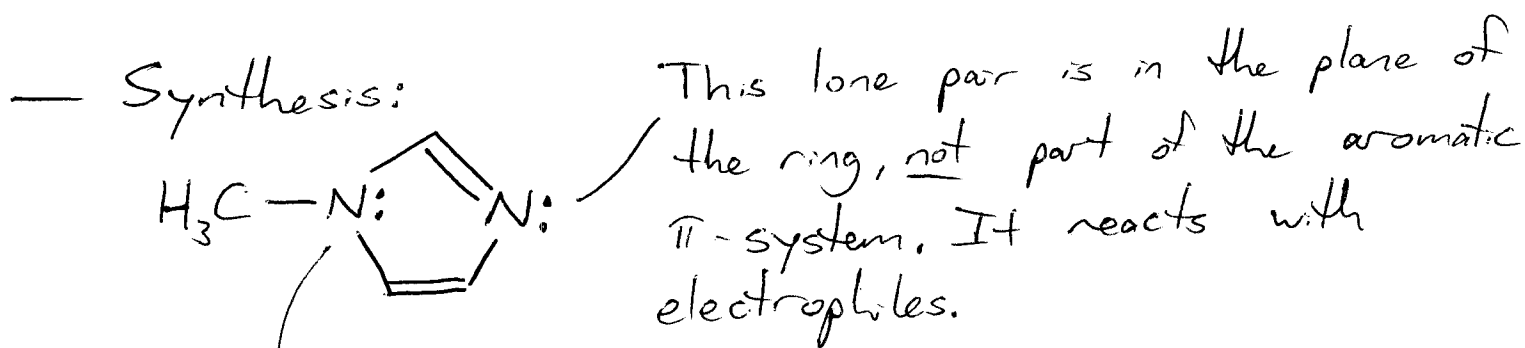 — Synthesis:
This lone pair is in the plane of
the ring, not part of the aromatic
π-system. It reacts with
electrophiles.
H₃C—N: N: